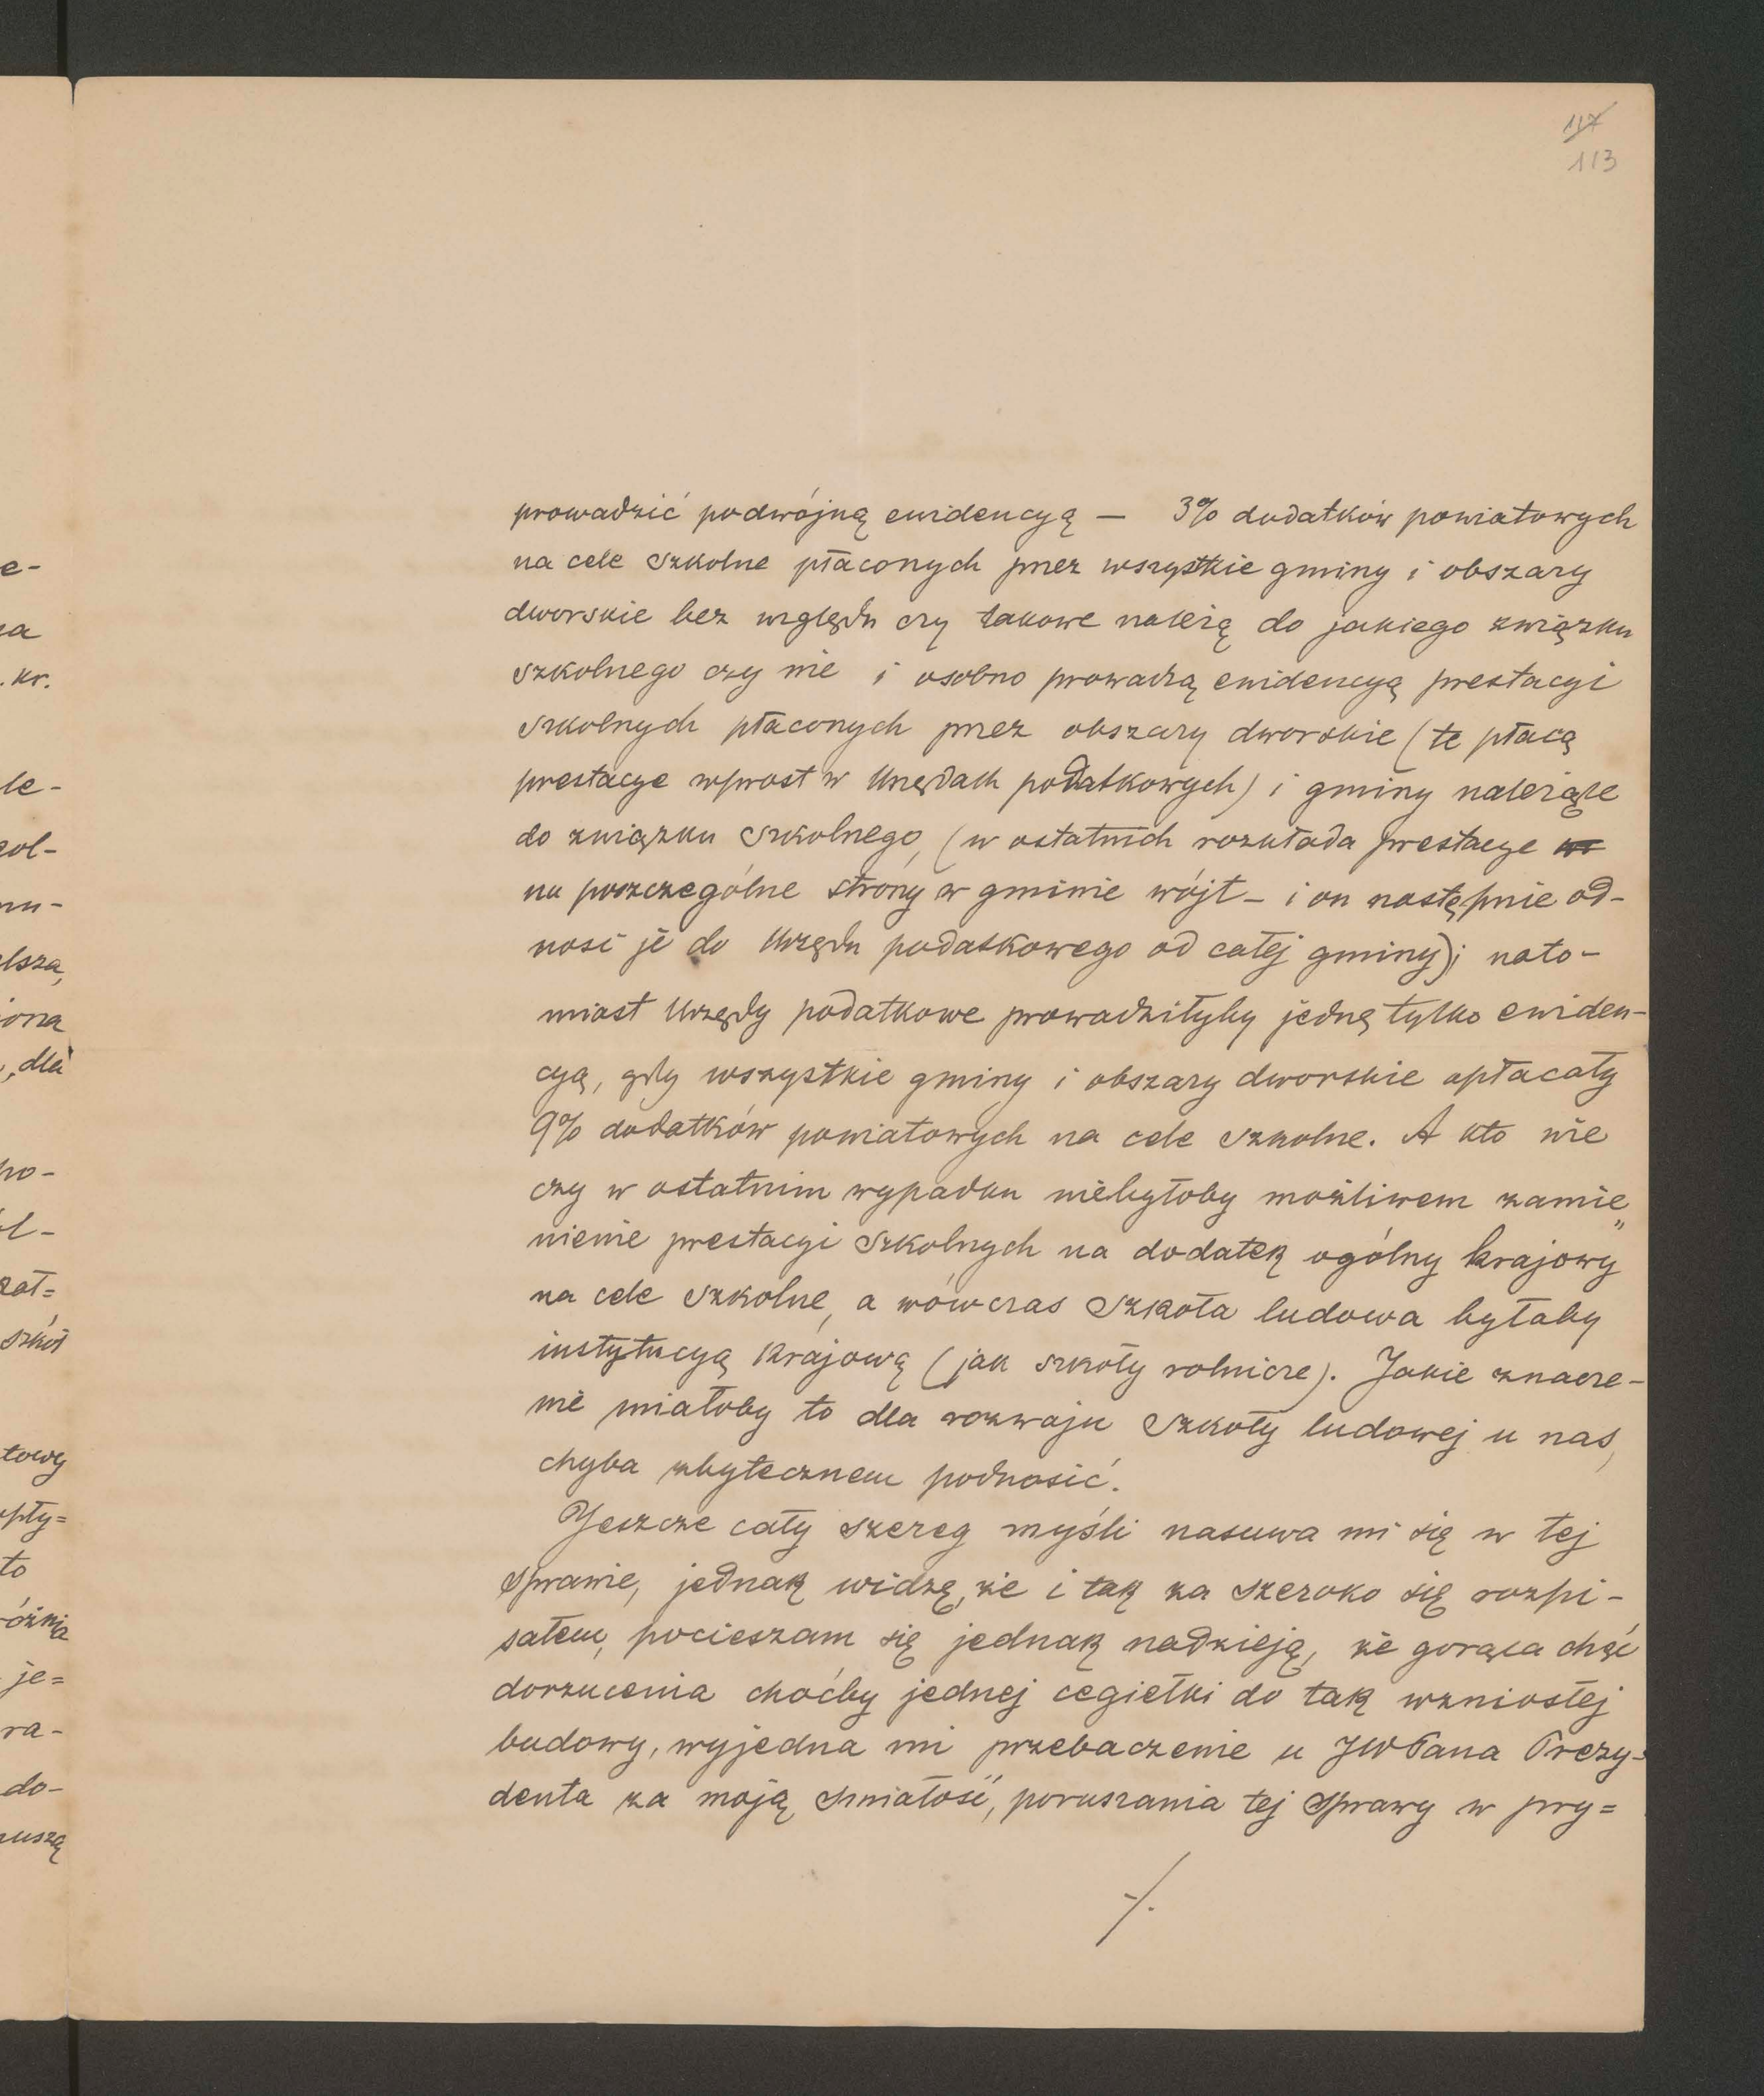 117
113
prowadzić podwójną ewidencyą — 3% dodatków powiatowych
na cele szkolne płaconych przez wszystkie gminy i obszary
dworskie bez względu czy takowe należą do jakiego związku
szkolnego czy nie i osobno prowadzą ewidencyą prestacyi
szkolnych płaconych przez obszary dworskie (te płacą
prestacye wprost w Urzędach podatkowych) i gminy należące
do związku szkolnego, (w ostatnich rozkłada prestacye
na poszczególne strony w gminie wójt – i on następnie od-
nosi je do Urzędu podatkowego od całej gminy); nato-
miast Urzędy podatkowe prowadziłyby jedną tylko ewiden-
cyą, gdy wszystkie gminy i obszary dworskie opłacały
9% dodatków powiatowych na cele szkolne. A kto wie
czy w ostatnim wypadku niebyłoby możliwem zamie„
nienie prestacyi szkolnych na dodatek ogólny krajowy
na cele szkolne, a wówczas szkoła ludowa byłaby
instytucyą krajową (jak szkoły rolnicze). Jakie znacze-
nie miałoby to dla rozwoju szkoły ludowej u nas,
chyba zbytecznem podnosić.
Jeszcze cały szereg myśli nasuwa mi się w tej
sprawie, jednak widzę, że i tak za szeroko się rozpi-
sałem, pocieszam się jednak nadzieją, że gorąca chęć
dorzucenia choćby jednej cegiełki do tak wzniosłej
budowy, wyjedna mi przebaczenie u JWPana Prezy-
denta za moją śmiałość, poruszania tej sprawy w pry=
./.
e-
kr.
le-
dla
to
je=
ra-
do-